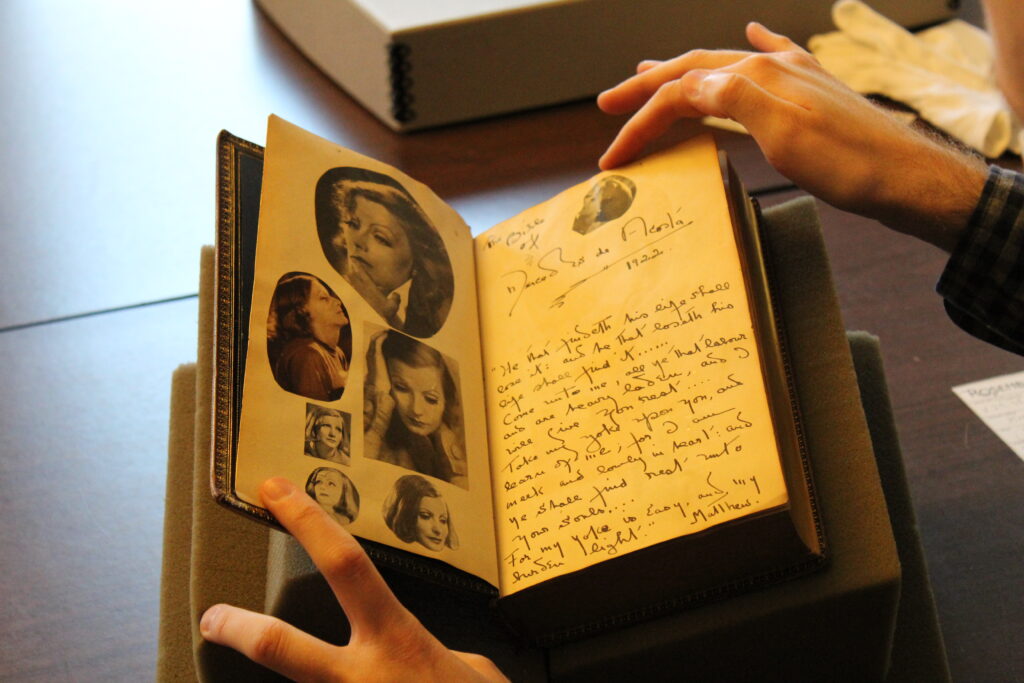 The Bible
of
Mercedes de Acosta
1922
"He that findeth his life shall
lose it: and he that loseth his
life shall find it......
Come unto me all ye that labour
and are heavy laden, and I
will give you rest....
Take my yoke upon you, and
learn of me, for I am
meek and lowly in heart: and
ye shall find rest unto
your souls...
For my yoke is easy and my
burden light." Matthew.
ROSENB